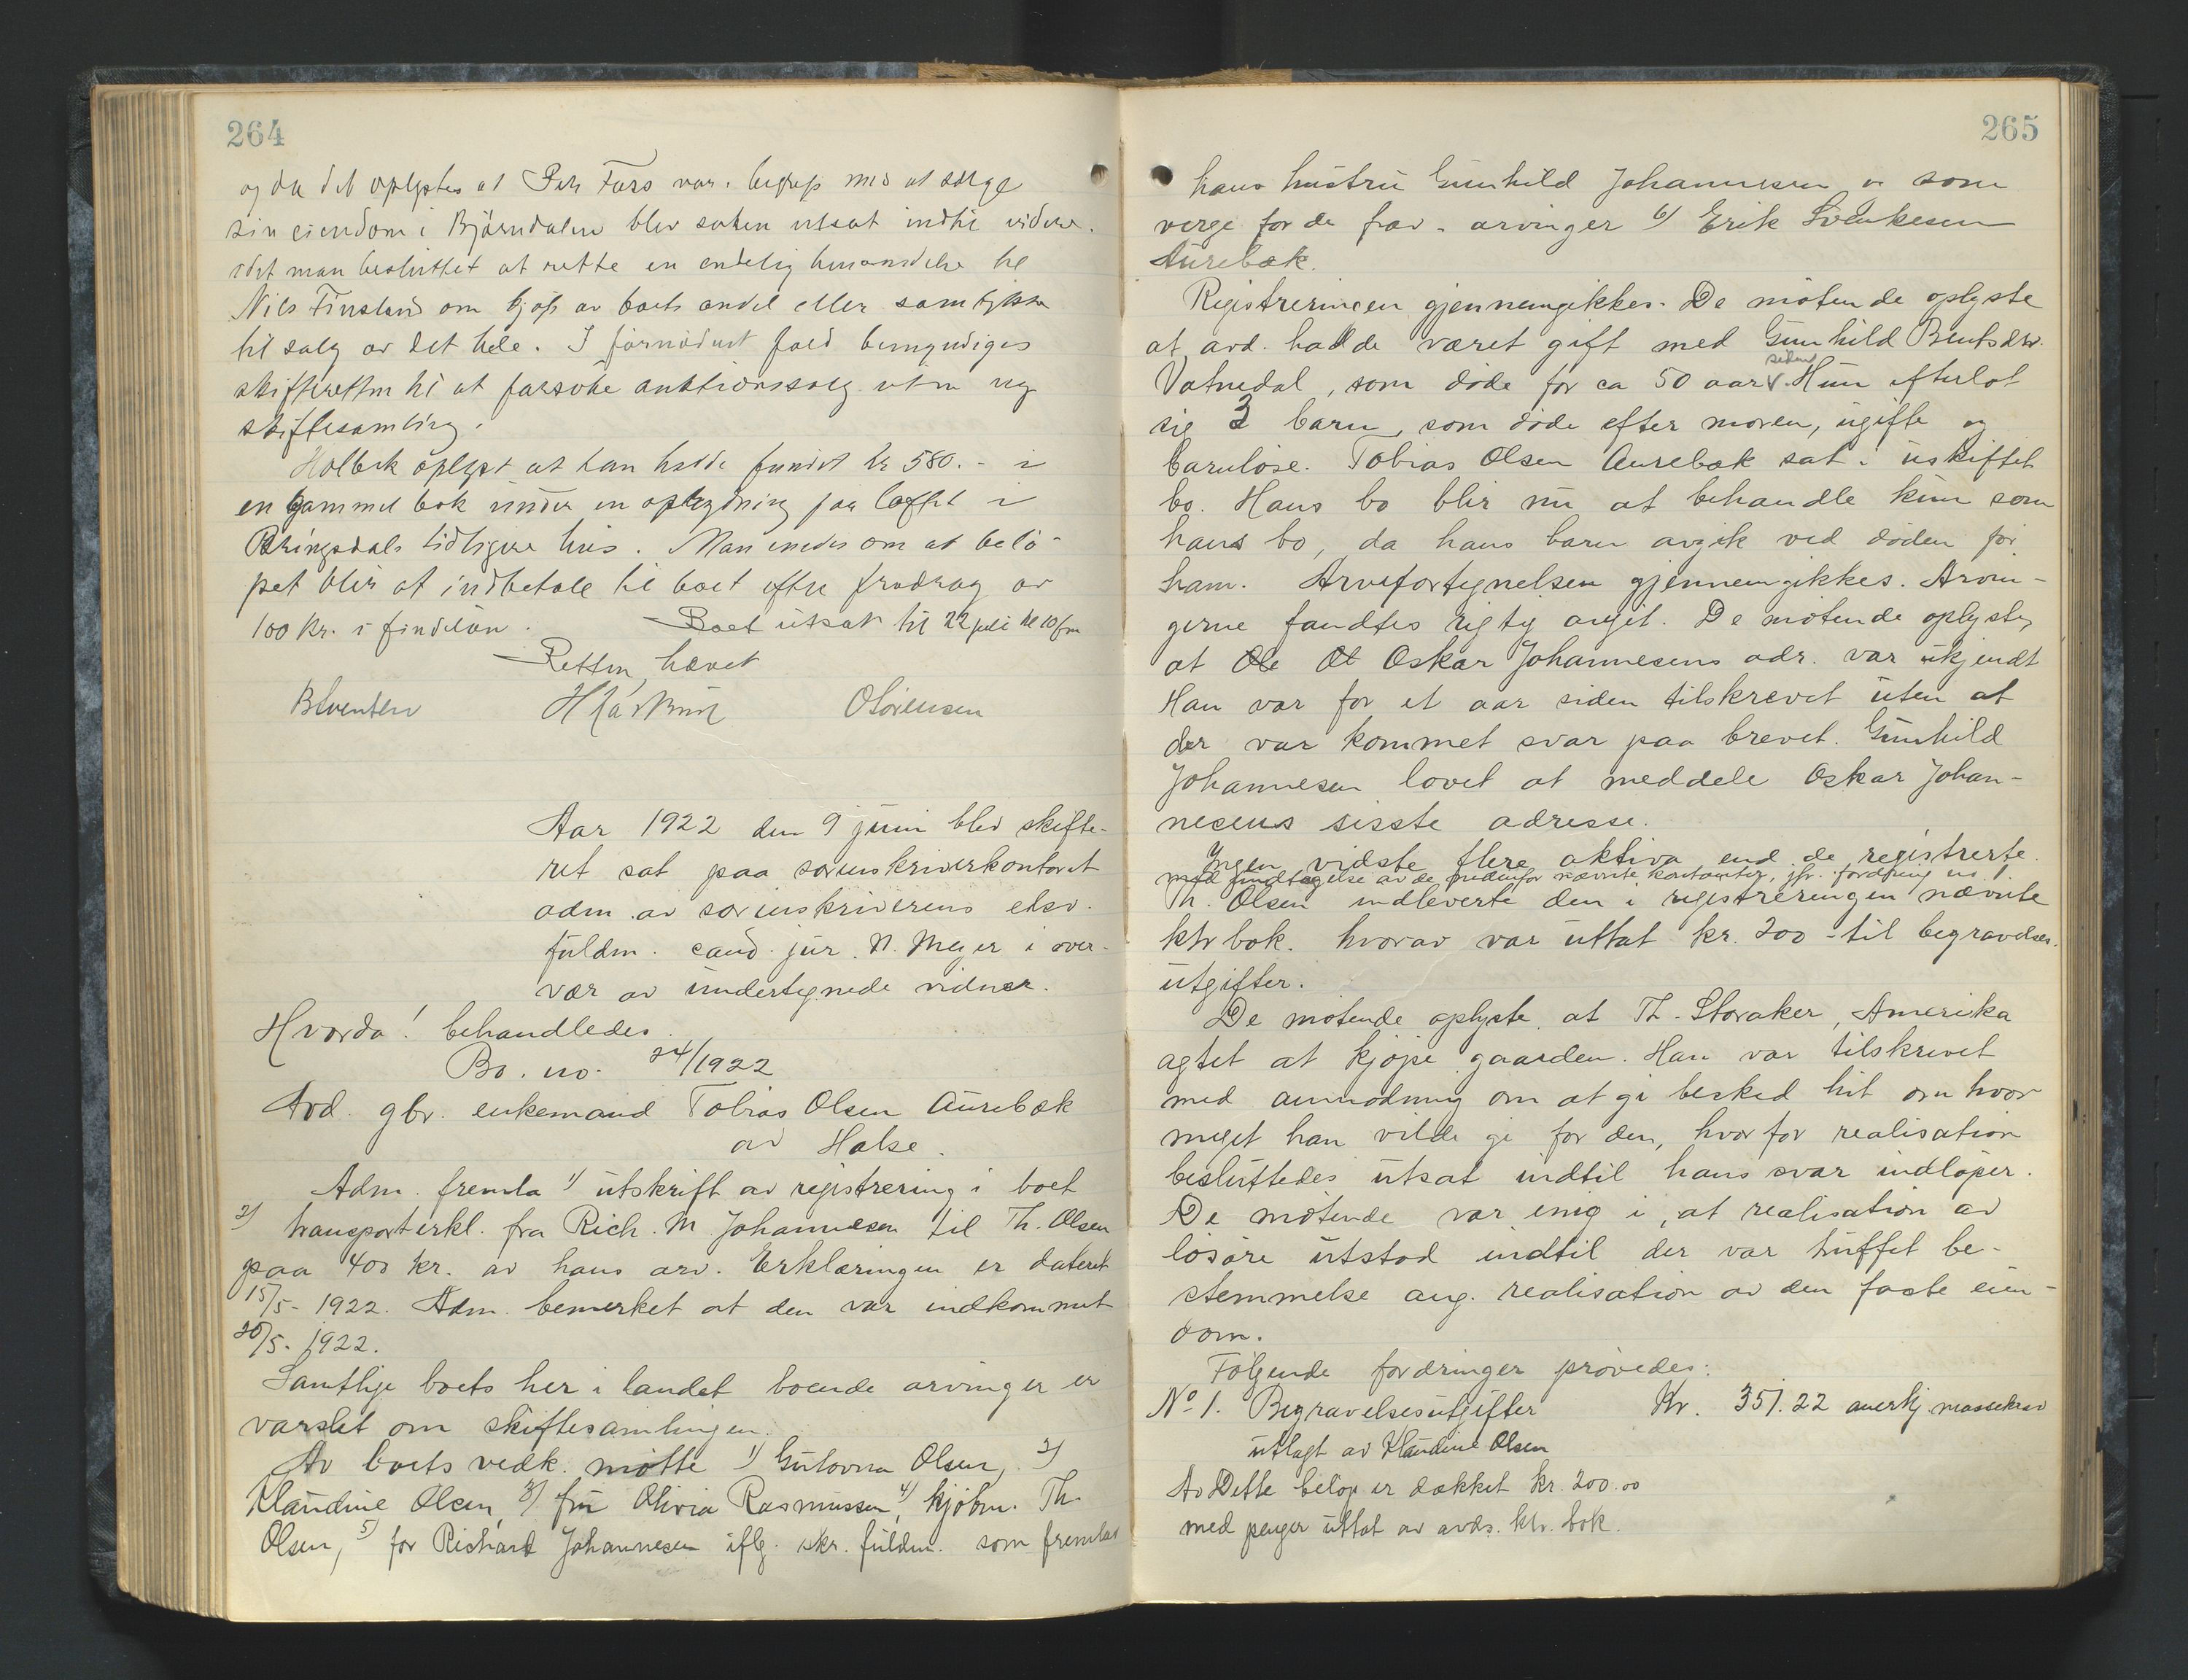 264
og da det oplystes at Peter Fars var i begrep med at sælge
sin eiendom i Bjørndalen blev saken utsat indtil videre.
idet man besluttet at rette en endelig henvendelse til
Nils Finsland om kjøp av boets andel eller samtykke
til salg av det hele. I fornødent fald bemyndiges
skifteretten til at forsøke auktionssalg uten ny
skiftesamling.
Holbek oplyst at han hadde fundet kr 580.- i
en gammel bok under en oplægning paa loftet i
Bringsdals tidligere hus. Man enedes om at belø-
pet blir at indbetale til boet efter fradrag av
100 kr. i findeløn. Boet utsat til 22 juli kl 10 fm
Retten hævet
O Sørensen
Aar 1922 den 9 juni blev skifte-
ret sat paa sorenskriverkontoret
adm. av sorenskriverens eksv.
fuldm. cand. jur. N. Meyer i over-
vær av undertegnede vidner.
Hvorda! behandledes.
Bo. no. 24/1922
Avd. gbr. enkemand Tobias Olsen Aurebæk
av Halse.
Adm. fremla 1) utskrift av registrering i boet
2) transporterkl. fra Rich. M. Johannesen til Th. Olsen
paa 400 kr. av hans arv. Erklæringen er datert
15/5- 1922. Adm. bemerket at den var indkommet
20/5- 1922.
Samtlige boets her i landet boende arvinger er
varslet om skiftesamlingen.
Av boets vedk. møtte 1) Gustovna Olsen, 2)
Klaudine Olsen, 3) fru Olivia Rasmussen, 4) kjøbm. Th.
Olsen, 5) for Richard Johannesen iflg. skr. fuldm. som fremlas
265
hans hustru Gunhild Johannesen og som
verge for de frav. arvinger 6) Erik Svenkesen
Aurebæk.
Registreringen gjennemgikkes. De møtende oplyste
at avd. hadde været gift med Gunhild Bentsdtr.
Vatnedal, som døde for ca 50 aar siden. Hun efterlot
sig 3 barn, som døde efter moren, ugifte og
barnløse. Tobias Olsen Aurebæk sat i uskiftet
bo. Hans bo blir nu at behandle kun som
hans bo, da hans barn avgik ved døden før
ham. Arvefortegnelsen gjennemgikkes. Arvin-
gerne fandtes rigtig angit. De møtende oplyste,
at Ole Ol Oskar Johannesens adr. var ukjendt
Han var for et aar siden tilskrevet uten at
der var kommet svar paa brevet. Gunhild
Johannesen lovet at meddele Oskar Johan-
nesens sisste adresse.
Ingen vidste flere aktiva end de registrerte.
med undtagelse av de nedenfor nævnte kontanter, jfr. fordring no 1.
Th. Olsen indleverte den i registreringen nævnte
ktr bok. hvorav var uttat kr. 200 - til begravelses-
utgifter.
De møtende oplyste, at Th. Storaker, Amerika
agtet at kjøpe gaarden. Han var tilskrevet
med anmodning om at gi besked hit om hvor
meget han vilde gi for den, hvorfor realisation
besluttedes utsat indtil hans svar indløper.
De møtende var enig i, at realisation av
løsøre utstod indtil der var truffet be-
stemmelse ang. realisation av den faste eien-
dom.
Følgende fordringer prøvedes:
No 1. Begravelsesutgifter Kr. 351.22 anerkj. massekrav
utlagt av Klaudine Olsen
Av Dette beløp er dækket kr. 200.00
med penger uttat av avds. ktr. bok.